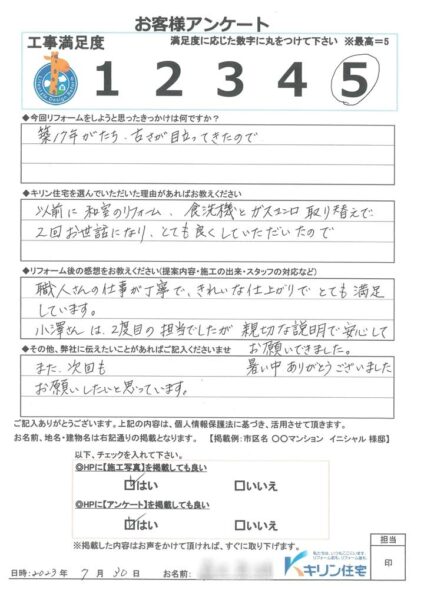 お客様アンケート
工事満足度
満足度に応じた数字に丸をつけて下さい ※最高=5
1 2 3 4 5
◆今回リフォームをしようと思ったきっかけは何ですか?
築17年がたち、古さが目立ってきたので
◆キリン住宅を選んでいただいた理由があればお教えください
以前に和室のリフォーム、食洗機とガスコンロ取り替えで
2回お世話になり、とても良くしていただいたので
◆リフォーム後の感想をお教えください(提案内容・施工の出来・スタッフの対応など)
職人さんの仕事が丁寧で、きれいな仕上がりでとても満足
しています。
小澤さんは、2度目の担当でしたが親切な説明で安心して
お願いできました。
◆その他、弊社に伝えたいことがあればご記入くださいませ
また、次回も
お願いしたいと思っています。
暑い中ありがとうございました
ご記入ありがとうございます。上記の内容は、個人情報保護法に基づき、活用させて頂きます。
お名前、地名・建物名は右記通りの掲載となります。 【掲載例:市区名 〇〇マンション イニシャル 様邸】
以下、チェックを入れて下さい。
◎HPに【施工写真】を掲載しても良い
☑はい □いいえ
◎HPに【アンケート】を掲載しても良い
☑はい □いいえ
※掲載した内容はお声をかけて頂ければ、すぐに取り下げます。
担当
印
キリン住宅
日時:2023年 7月 30日 お名前: